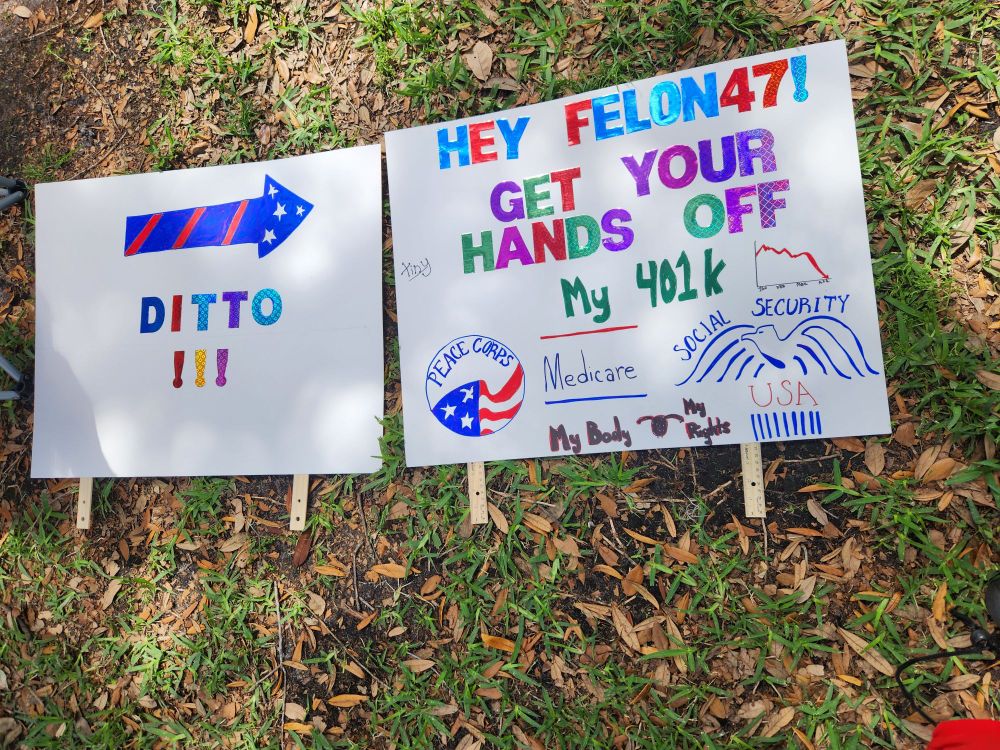 DITTO
!!!
HEY FELON47!
GET YOUR
HANDS OFF
Tiny
My 401k
PEACE CORPS
Medicare
My Body
My
Rights
SOCIAL SECURITY
USA